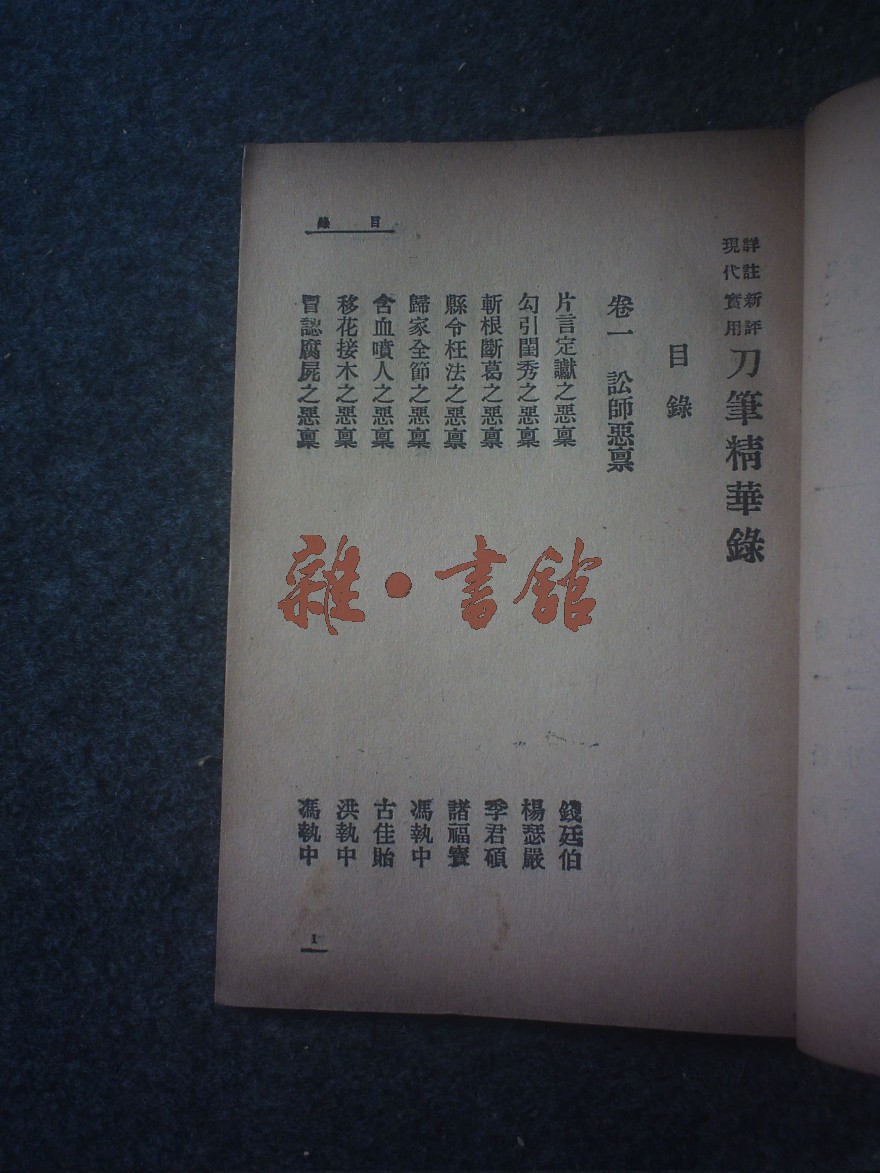 詳註新評
現代實用
刀筆精華錄
目錄
卷一 訟師惡禀
片言定讞之惡稟 錢廷伯
勾引閨秀之惡稟 楊瑟嚴
斬根斷葛之惡稟 季君碩
縣令枉法之惡稟 諸福寶
歸家全節之惡稟 馮執中
含血噴人之惡稟 古佳貽
移花接木之惡稟 洪執中
冒認腐屍之惡稟 馮執中
目錄
1
雜·書館